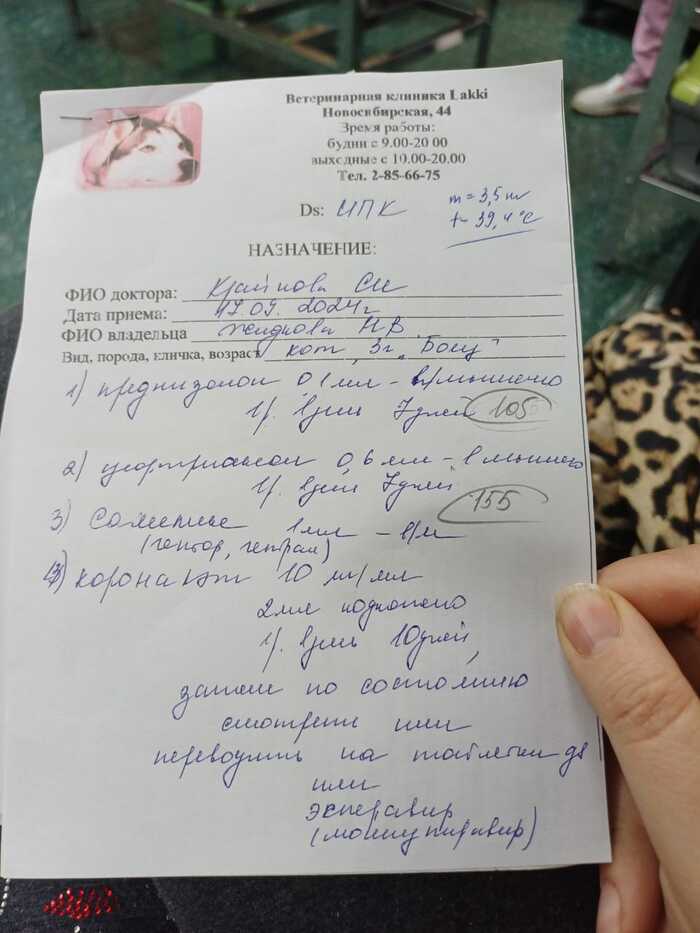 Ветеринарная клиника Lakki
Новосибирская, 44
Время работы:
будни с 9.00-20 00
выходные с 10.00-20.00
Тел. 2-85-66-75
Ds: ИПК
m = 3,5 кг
t - 39,4 °C
НАЗНАЧЕНИЕ:
ФИО доктора:
Дата приема: 17.09.2024г
ФИО владельца Жиднова НВ
Вид, порода, кличка, возраст кот, 3г,
1) преднизолон 0,1мл - в/мышечно
1р. в день 7 дней 105
2) цефтриаксон 0,6 мл - в мышечно
1р. в день 7 дней
155
3) 1 мл - в/м
10 мг/мл
2мл подкожно
1р. в день 10 дней,
затем по состоянию
смотреть или
переводить на таблетки gs
или
(молнупиравир)